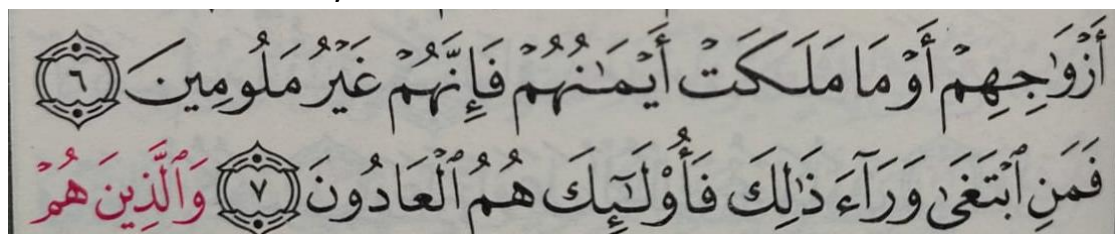 أَزْوَٰجِهِمْ أَوْ مَا مَلَكَتْ أَيْمَـٰنُهُمْ فَإِنَّهُمْ غَيْرُ مَلُومِينَ ٦
فَمَنِ ٱبْتَغَىٰ وَرَآءَ ذَٰلِكَ فَأُو۟لَـٰٓئِكَ هُمُ ٱلْعَادُونَ ٧ وَٱلَّذِينَ هُمْ